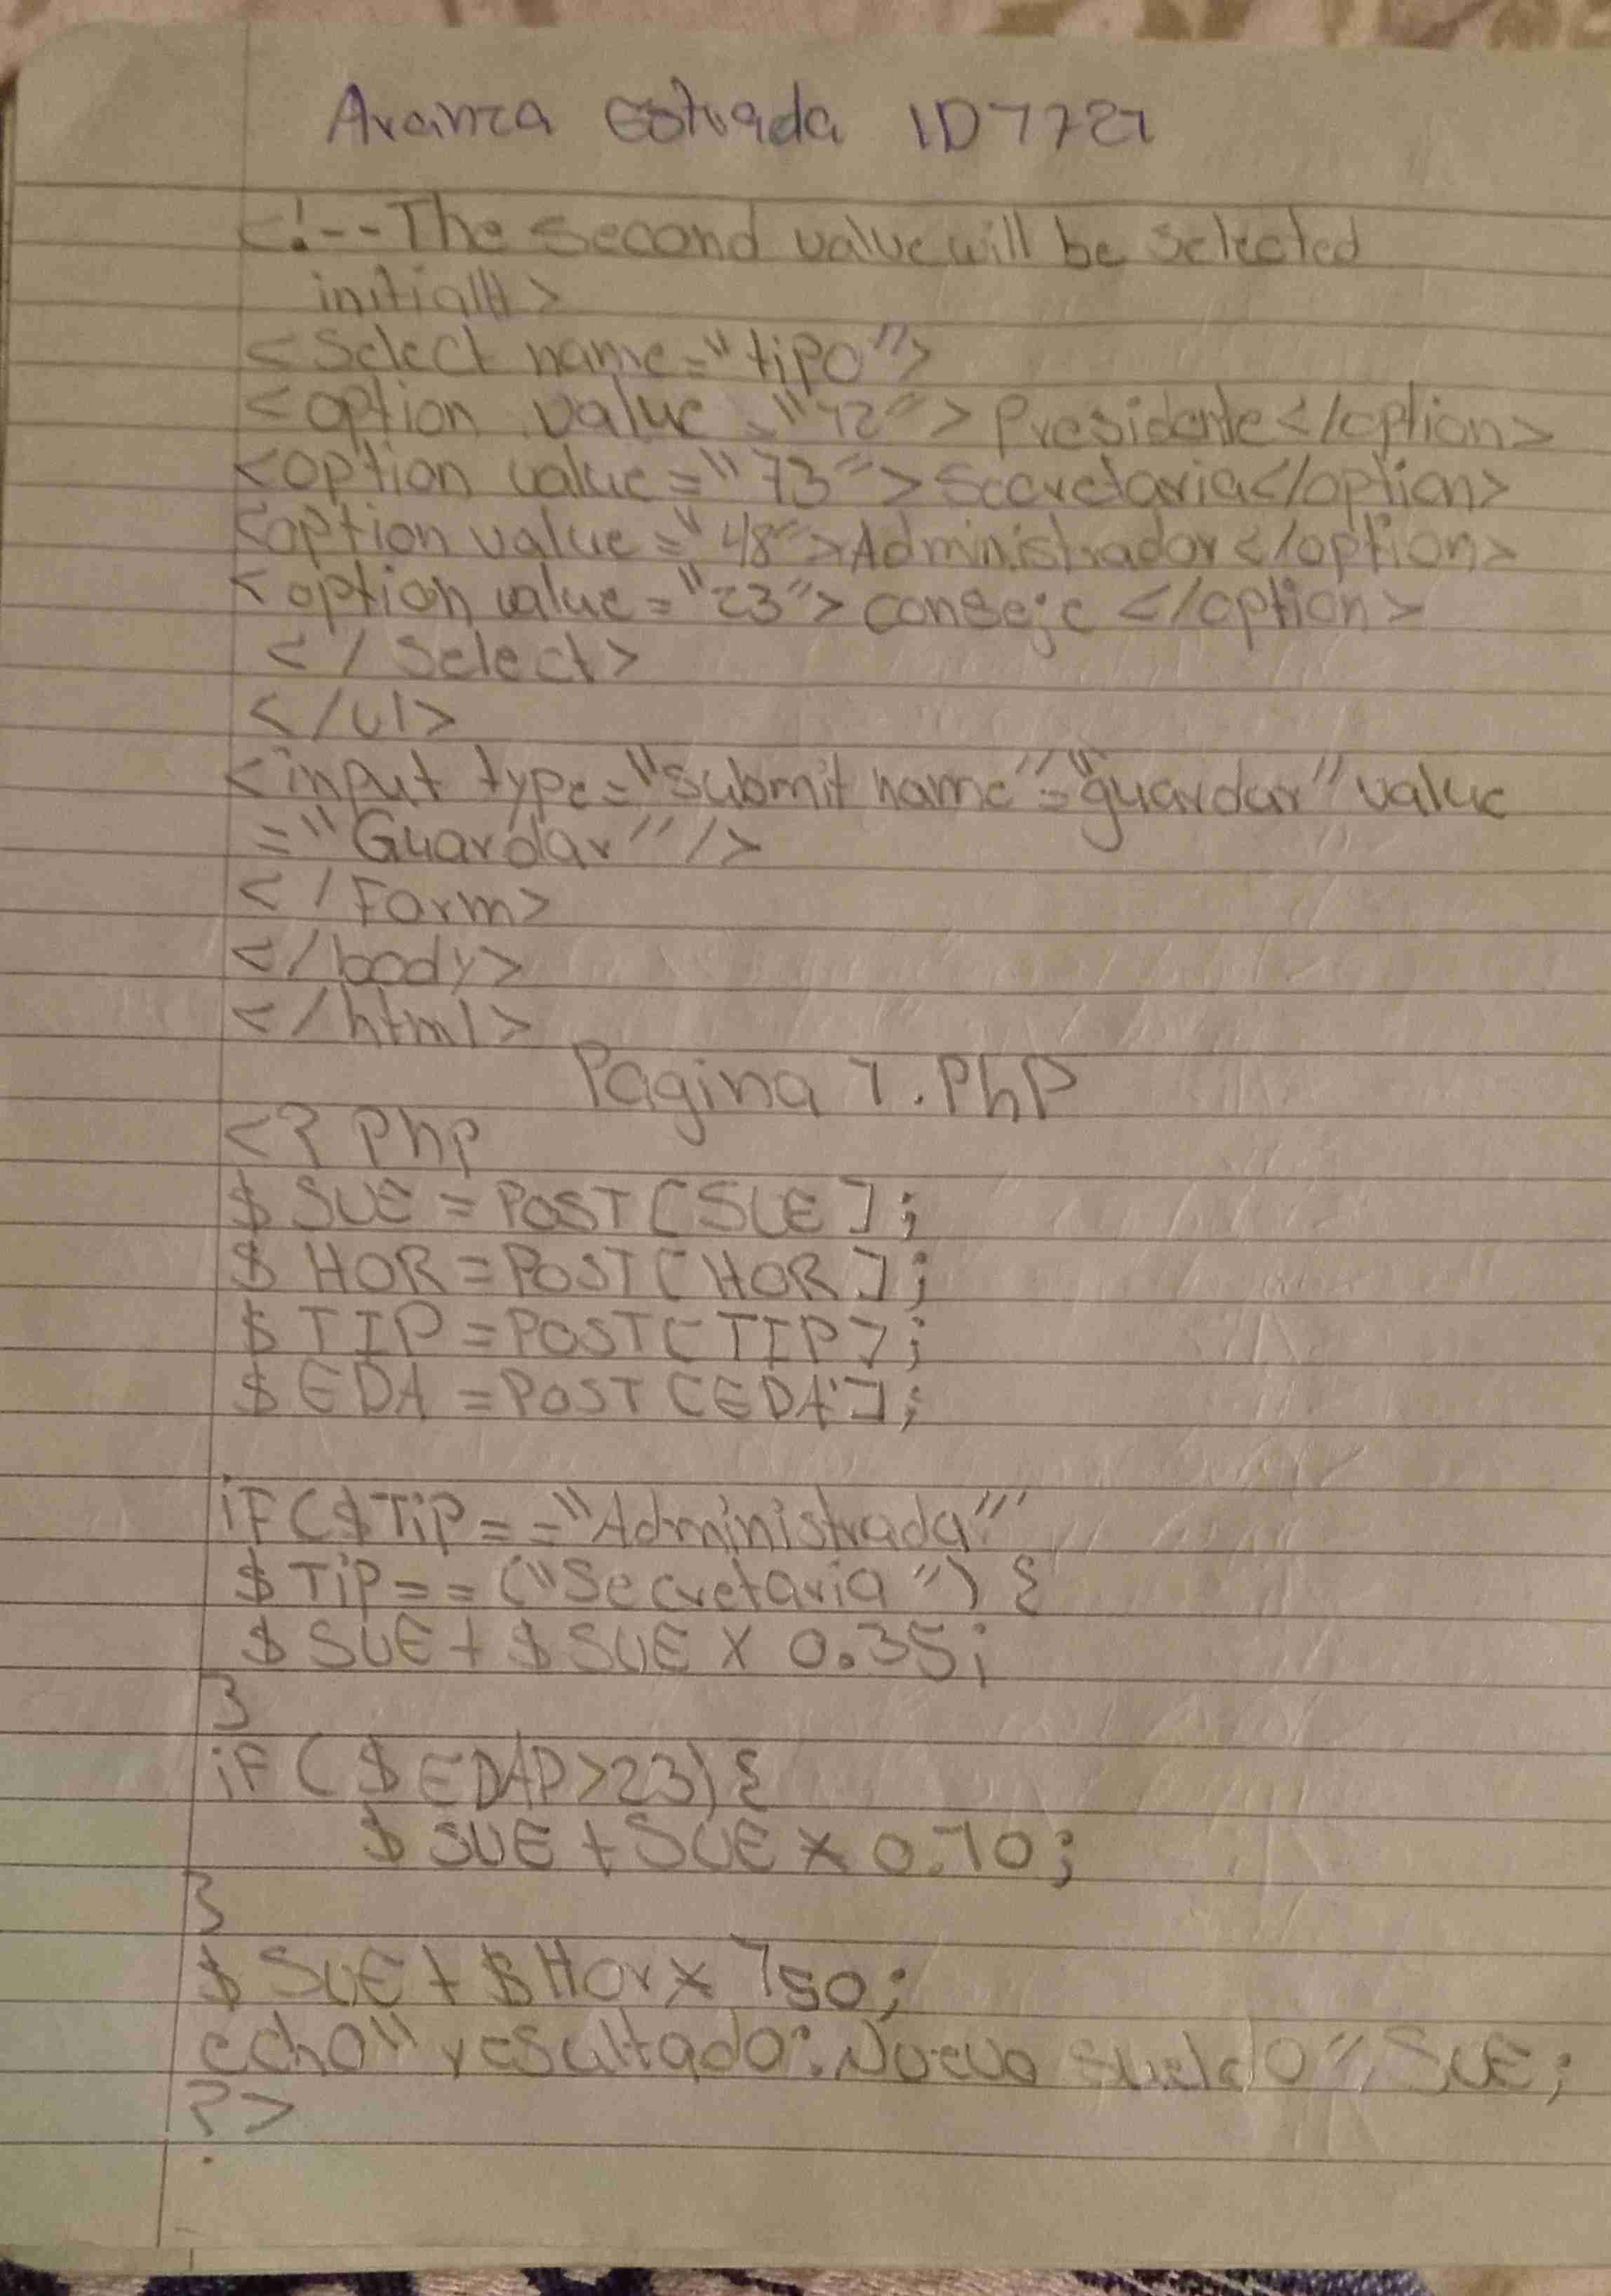 Aranza Estrada 1D7721
<!--The second value will be selected
initial >
<Select name="tipo">
<option value="12">Presidente</option>
<option value="13">Secretaria</option>
<option value="48">Administrador</option>
<option value="23">conseje </option>
</Select>
</ul>
<input type="submit name"="guardar" value
="Guardar"/>
</Form>
</body>
</html>
Pagina 1.PhP
<? Php
$ SUE = POST[SUE];
$ HOR = POST[HOR];
$ TIP = POST[TIP];
$ EDA = POST[EDA'];
iF($TiP=="Administrada"
$ TiP==("Secretaria") {
$ SUE + $ SUE X 0.35;
}
iF ( $ EDAD>23) {
$ SUE + SUE X 0.10;
}
$ SUE + $ Hor x 150;
echo" resultado: Nuevo sueldo", SUE;
?>